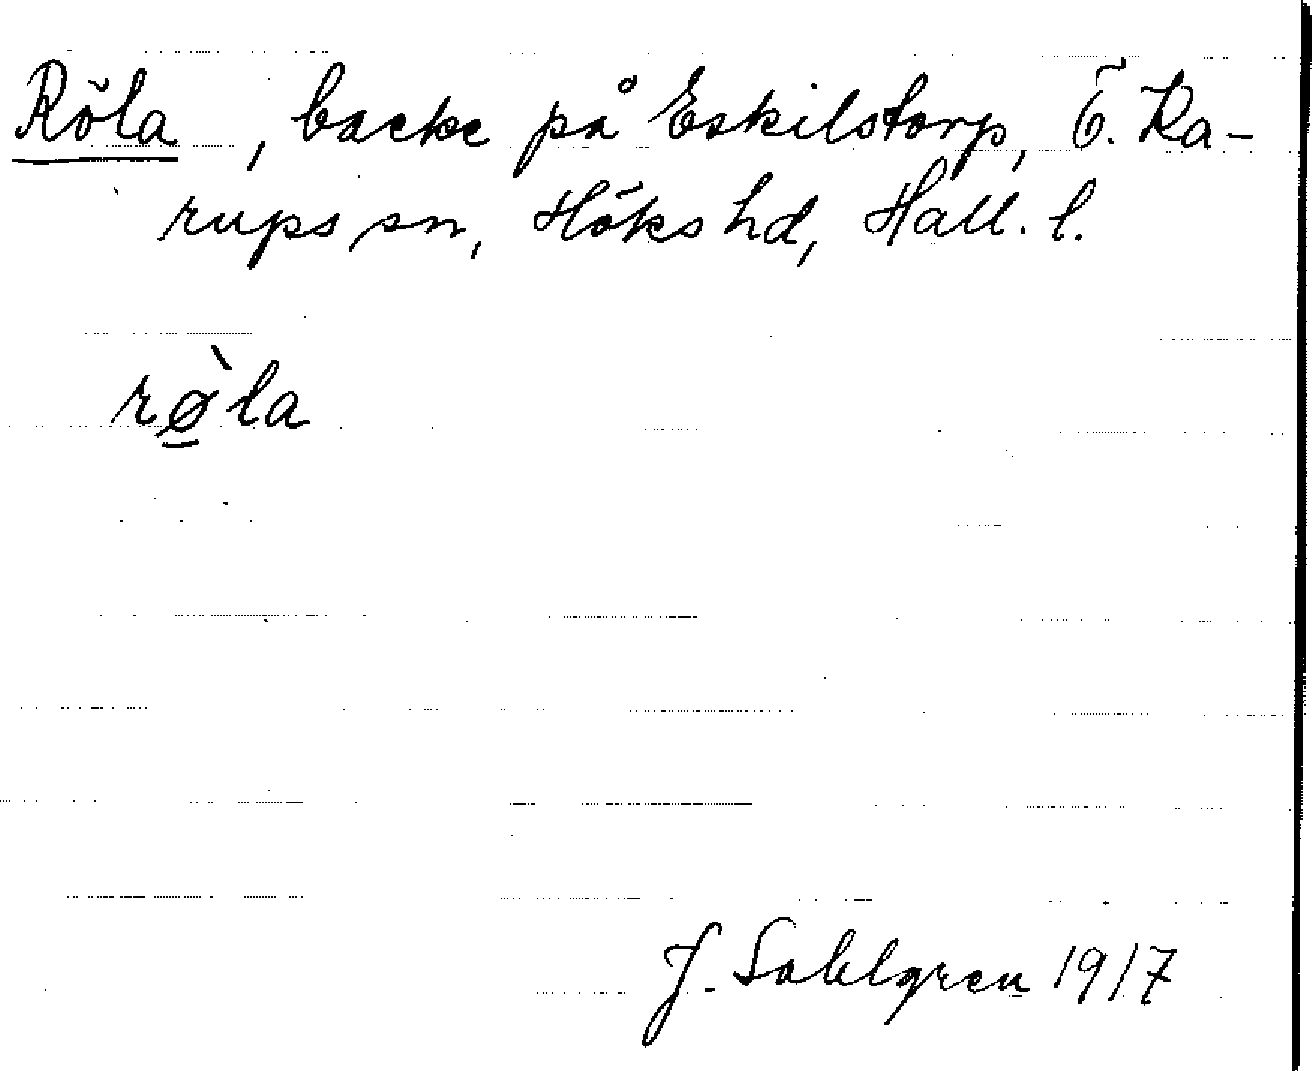 Röla, backe på Eskilstorp, Ö. Ka-
rups sn, Höks hd, Hall. l.
rø̲̀la
J. Sahlgren 1917